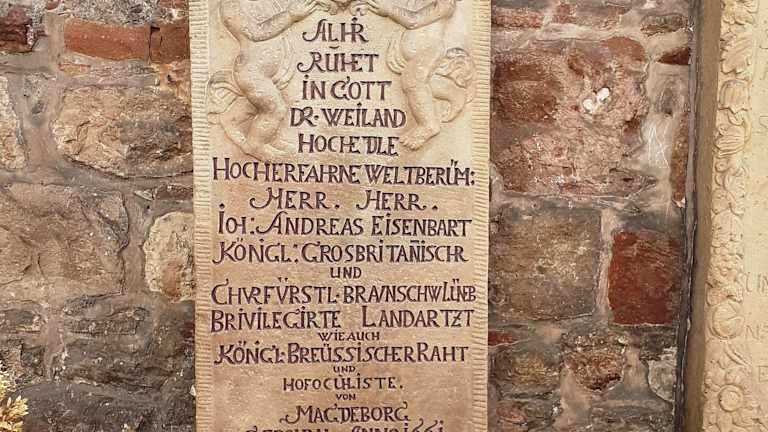 ALHR
RUHET
IN GOTT
DR. WEILAND
HOCHEDLE
HOCHERFAHRNE WELTBERÜM:
HERR. HERR.
IOH: ANDREAS EISENBART
KÖNIGL: GROSBRITAN̄ISCHR
UND
CHVRFÜRSTL. BRAVNSCHW LÜNEB
BRIVILEGIRTE LANDARTZT
WIE AUCH
KÖNIGL: BREÜSSISCHER RAHT
UND
HOFOCULISTE.
VON
MAGDEBORG
ANNO 1661